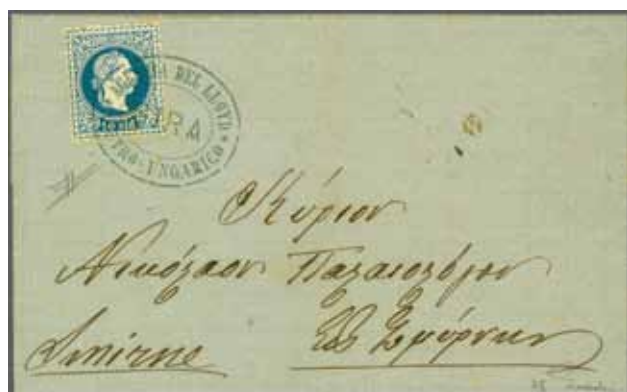 DEL LLOYD
UNGARICO
Κύριον
Νικόλαον Παλαιολόγον
Smirne
Εἰς Σμύρνην